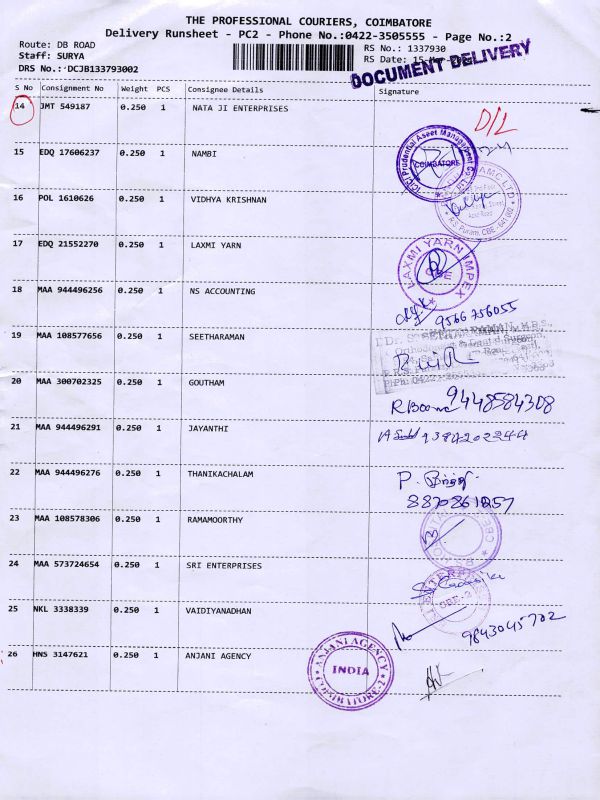 THE PROFESSIONAL COURIERS, COIMBATORE
Delivery Runsheet - PC2 - Phone No.:0422-3505555 - Page No.:2
Route: DB ROAD
RS No.: 1337930
Staff: SURYA
RS Date: 15-Mar-
DRS No.: DCJB133793002
DOCUMENT DELIVERY
S No Consignment No Weight PCS Consignee Details Signature
14 JMT 549187 0.250 1 NATA JI ENTERPRISES
D/L
ICICI Prudential Asset Management Co. Ltd
COIMBATORE
15 EDQ 17606237 0.250 1 NAMBI
AMC LTD
R.S. Puram, CBE - 641 002
16 POL 1610626 0.250 1 VIDHYA KRISHNAN
17 EDQ 21552270 0.250 1 LAXMI YARN
LAXMI YARN IMPEX
CBE
18 MAA 944496256 0.250 1 NS ACCOUNTING
9566756055
19 MAA 108577656 0.250 1 SEETHARAMAN
20 MAA 300702325 0.250 1 GOUTHAM
9448584308
21 MAA 944496291 0.250 1 JAYANTHI
22 MAA 944496276 0.250 1 THANIKACHALAM
P.
8870861257
23 MAA 108578306 0.250 1 RAMAMOORTHY
24 MAA 573724654 0.250 1 SRI ENTERPRISES
CBE-2
25 NKL 3338339 0.250 1 VAIDIYANADHAN
9843045702
26 HNS 3147621 0.250 1 ANJANI AGENCY
ANJANI AGENCY
INDIA
COIMBATORE-2